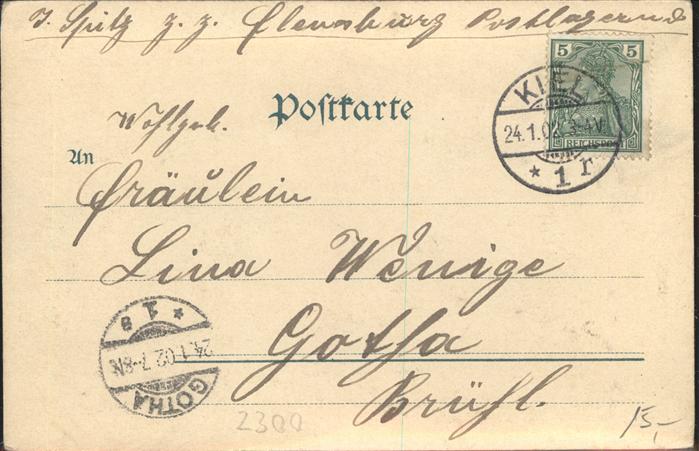 J. Spitz z. z. Flensburg Postlagernd
5 5
KIEL
Postkarte
Wohlgeb.
24.1.02. 3-4V.
REICHSPOST
An
* 1 r
Fräulein
Lina Wenige
* 1 e
24.1.02.7-8N.
GOTHA
Gotha
Brühl.
2300
15,-